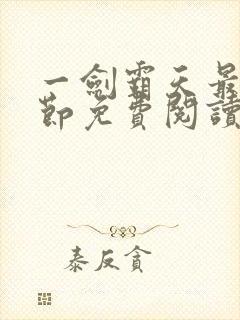 一劍霸天最
節免費閱讀
泰反貪